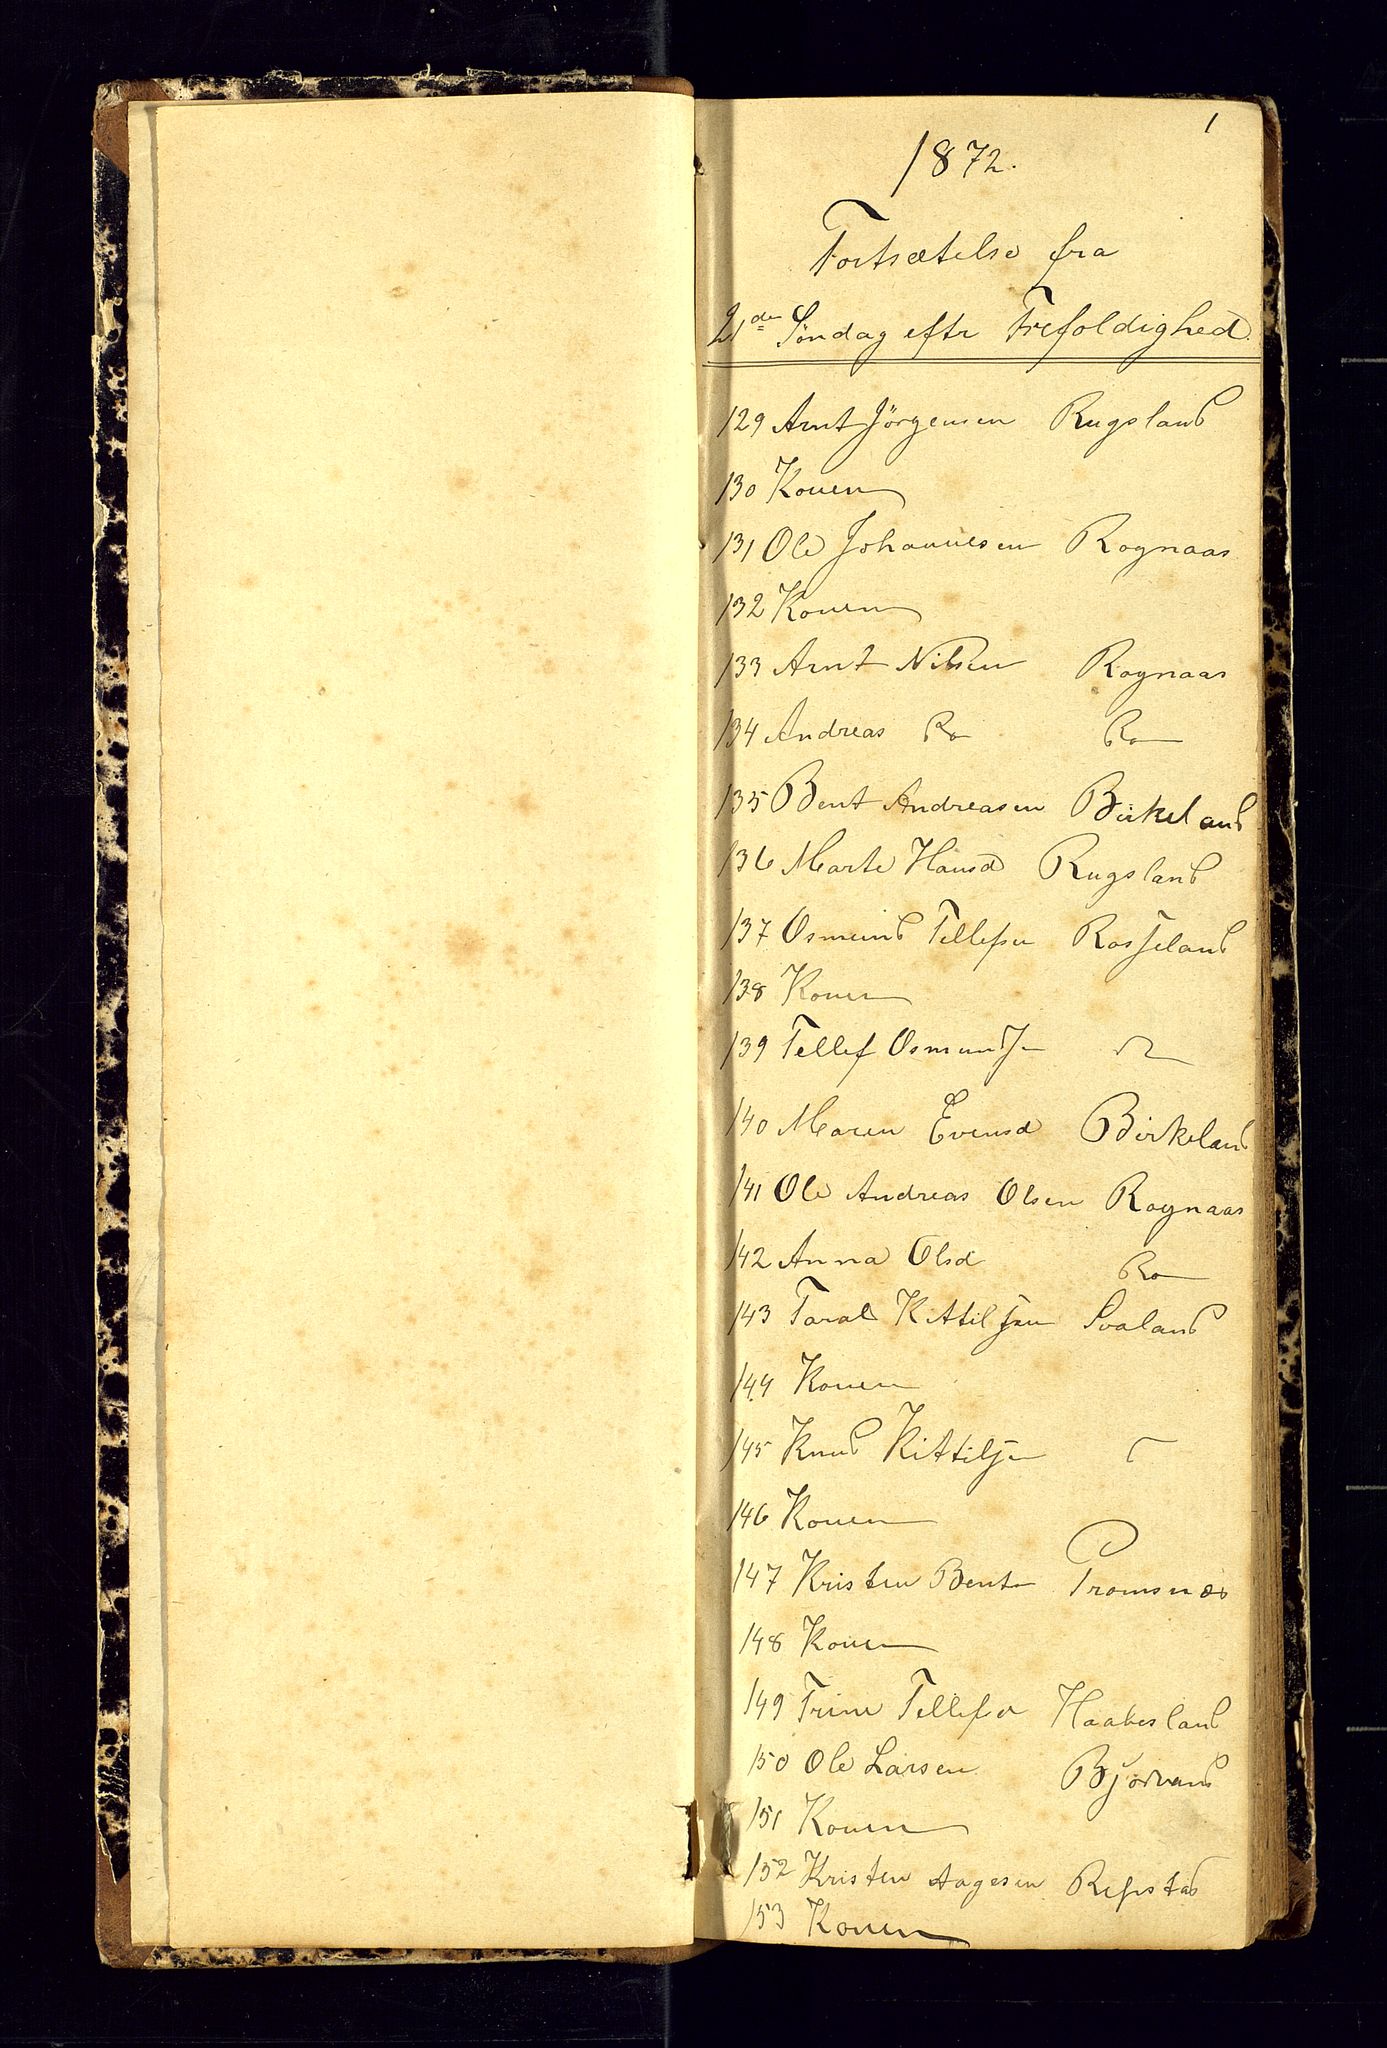 1
1872.
Fortsætelse fra
21de Søndag eftr Trefoldighed.
129 Arnt Jörgensen Rugsland
130 Konen
131 Ole Johannesen Rognaas
132 Konen
133 Arnt Nilsen Rognaas
134 Andreas Do Do
135 Bent Andreasen Birkeland
136 Marte Hansd Rugsland
137 Osmund Tellefsen Rosseland
138 Konen
139 Tellef Osmundsen
140 Maren Evensd Birkeland
141 Ole Andreas Olsen Rognaas
142 Anna Olsd Do
143 Tarald Kittilsen Svaland
144 Konen
145 Knud Kittilsen
146 Konen
147 Kristen Bentsen Tromsnæs
148 Konen
149 Trine Tellefsd Haabesland
150 Ole Larsen Bjorvand
151 Konen
152 Kristen Aagesen Repstad
153 Konen